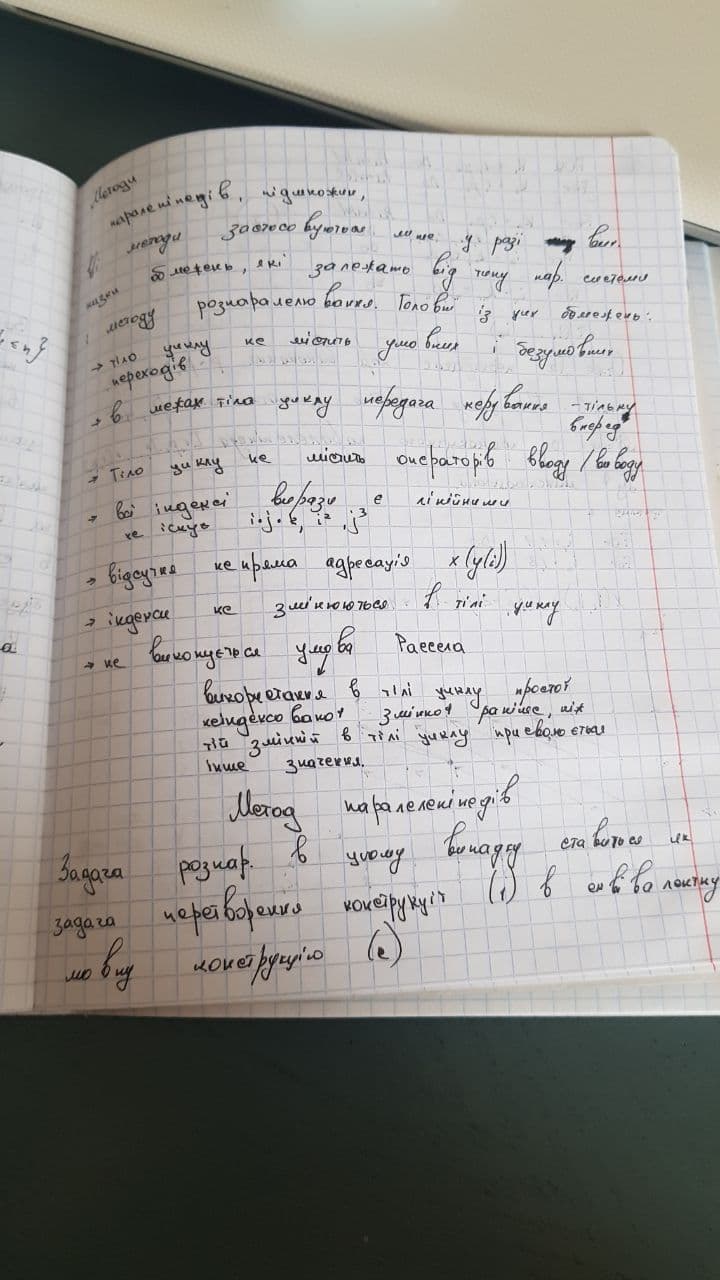 Методи
паралепіпедів, підмножин,
Ці методи застосовуються лише у разі вик.
низки обмежень, які залежать від типу пар. системи
і методу розпаралелювання. Головні із цих обмежень:
→ тіло циклу не містить умовних і безумовних
переходів
→ в межах тіла циклу передача керування - тільки
вперед
→ Тіло циклу не містить операторів вводу/виводу
→ всі індексні вирази є лінійними
не існує i·j·k, i², j³
→ відсутня непряма адресація x(y(i))
→ індекси не змінюються в тілі циклу
→ не виконується умова Рассела
використання в тілі циклу простої
неіндексованої змінної раніше, ніж
тій змінній в тілі циклу присвоюється
інше значення.
Метод паралепіпедів
Задача розпар. в цьому випадку ставиться як
задача перетворення конструкції (1) в еквівалентну
мовну конструкцію (2)